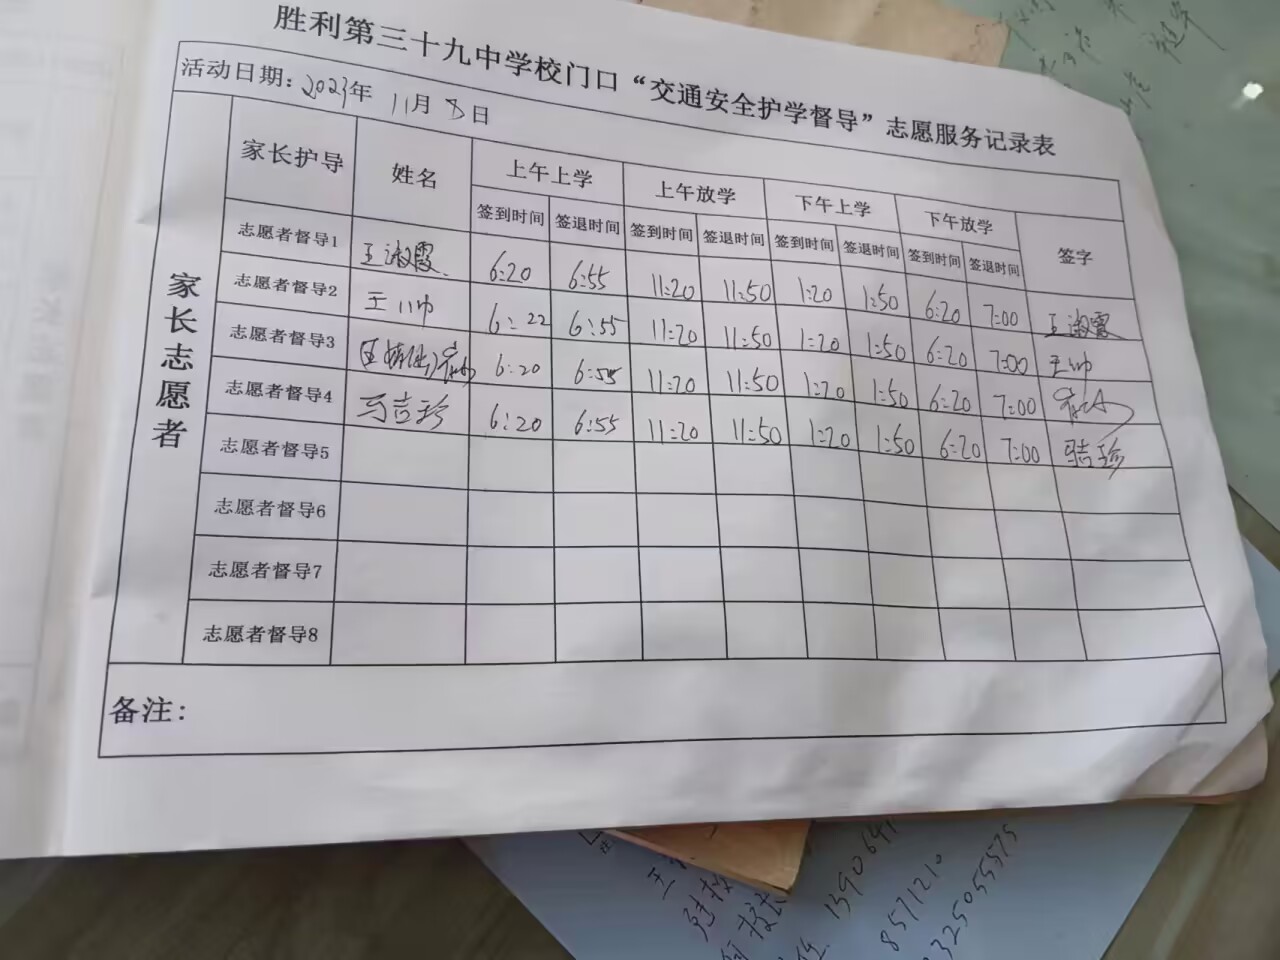 胜利第三十九中学校门口“交通安全护学督导”志愿服务记录表
活动日期: 2023年 11月 8日
家长护导 姓名 上午上学 上午放学 下午上学 下午放学 签字
签到时间 签退时间 签到时间 签退时间 签到时间 签退时间 签到时间 签退时间
家长志愿者
志愿者督导1 王淑霞 6:20 6:55 11:20 11:50 1:20 1:50 6:20 7:00 王淑霞
志愿者督导2 王帅 6:22 6:55 11:20 11:50 1:20 1:50 6:20 7:00 王帅
志愿者督导3 6:20 6:55 11:20 11:50 1:20 1:50 6:20 7:00
志愿者督导4 马吉珍 6:20 6:55 11:20 11:50 1:20 1:50 6:20 7:00 马吉珍
志愿者督导5
志愿者督导6
志愿者督导7
志愿者督导8
备注:
8571210